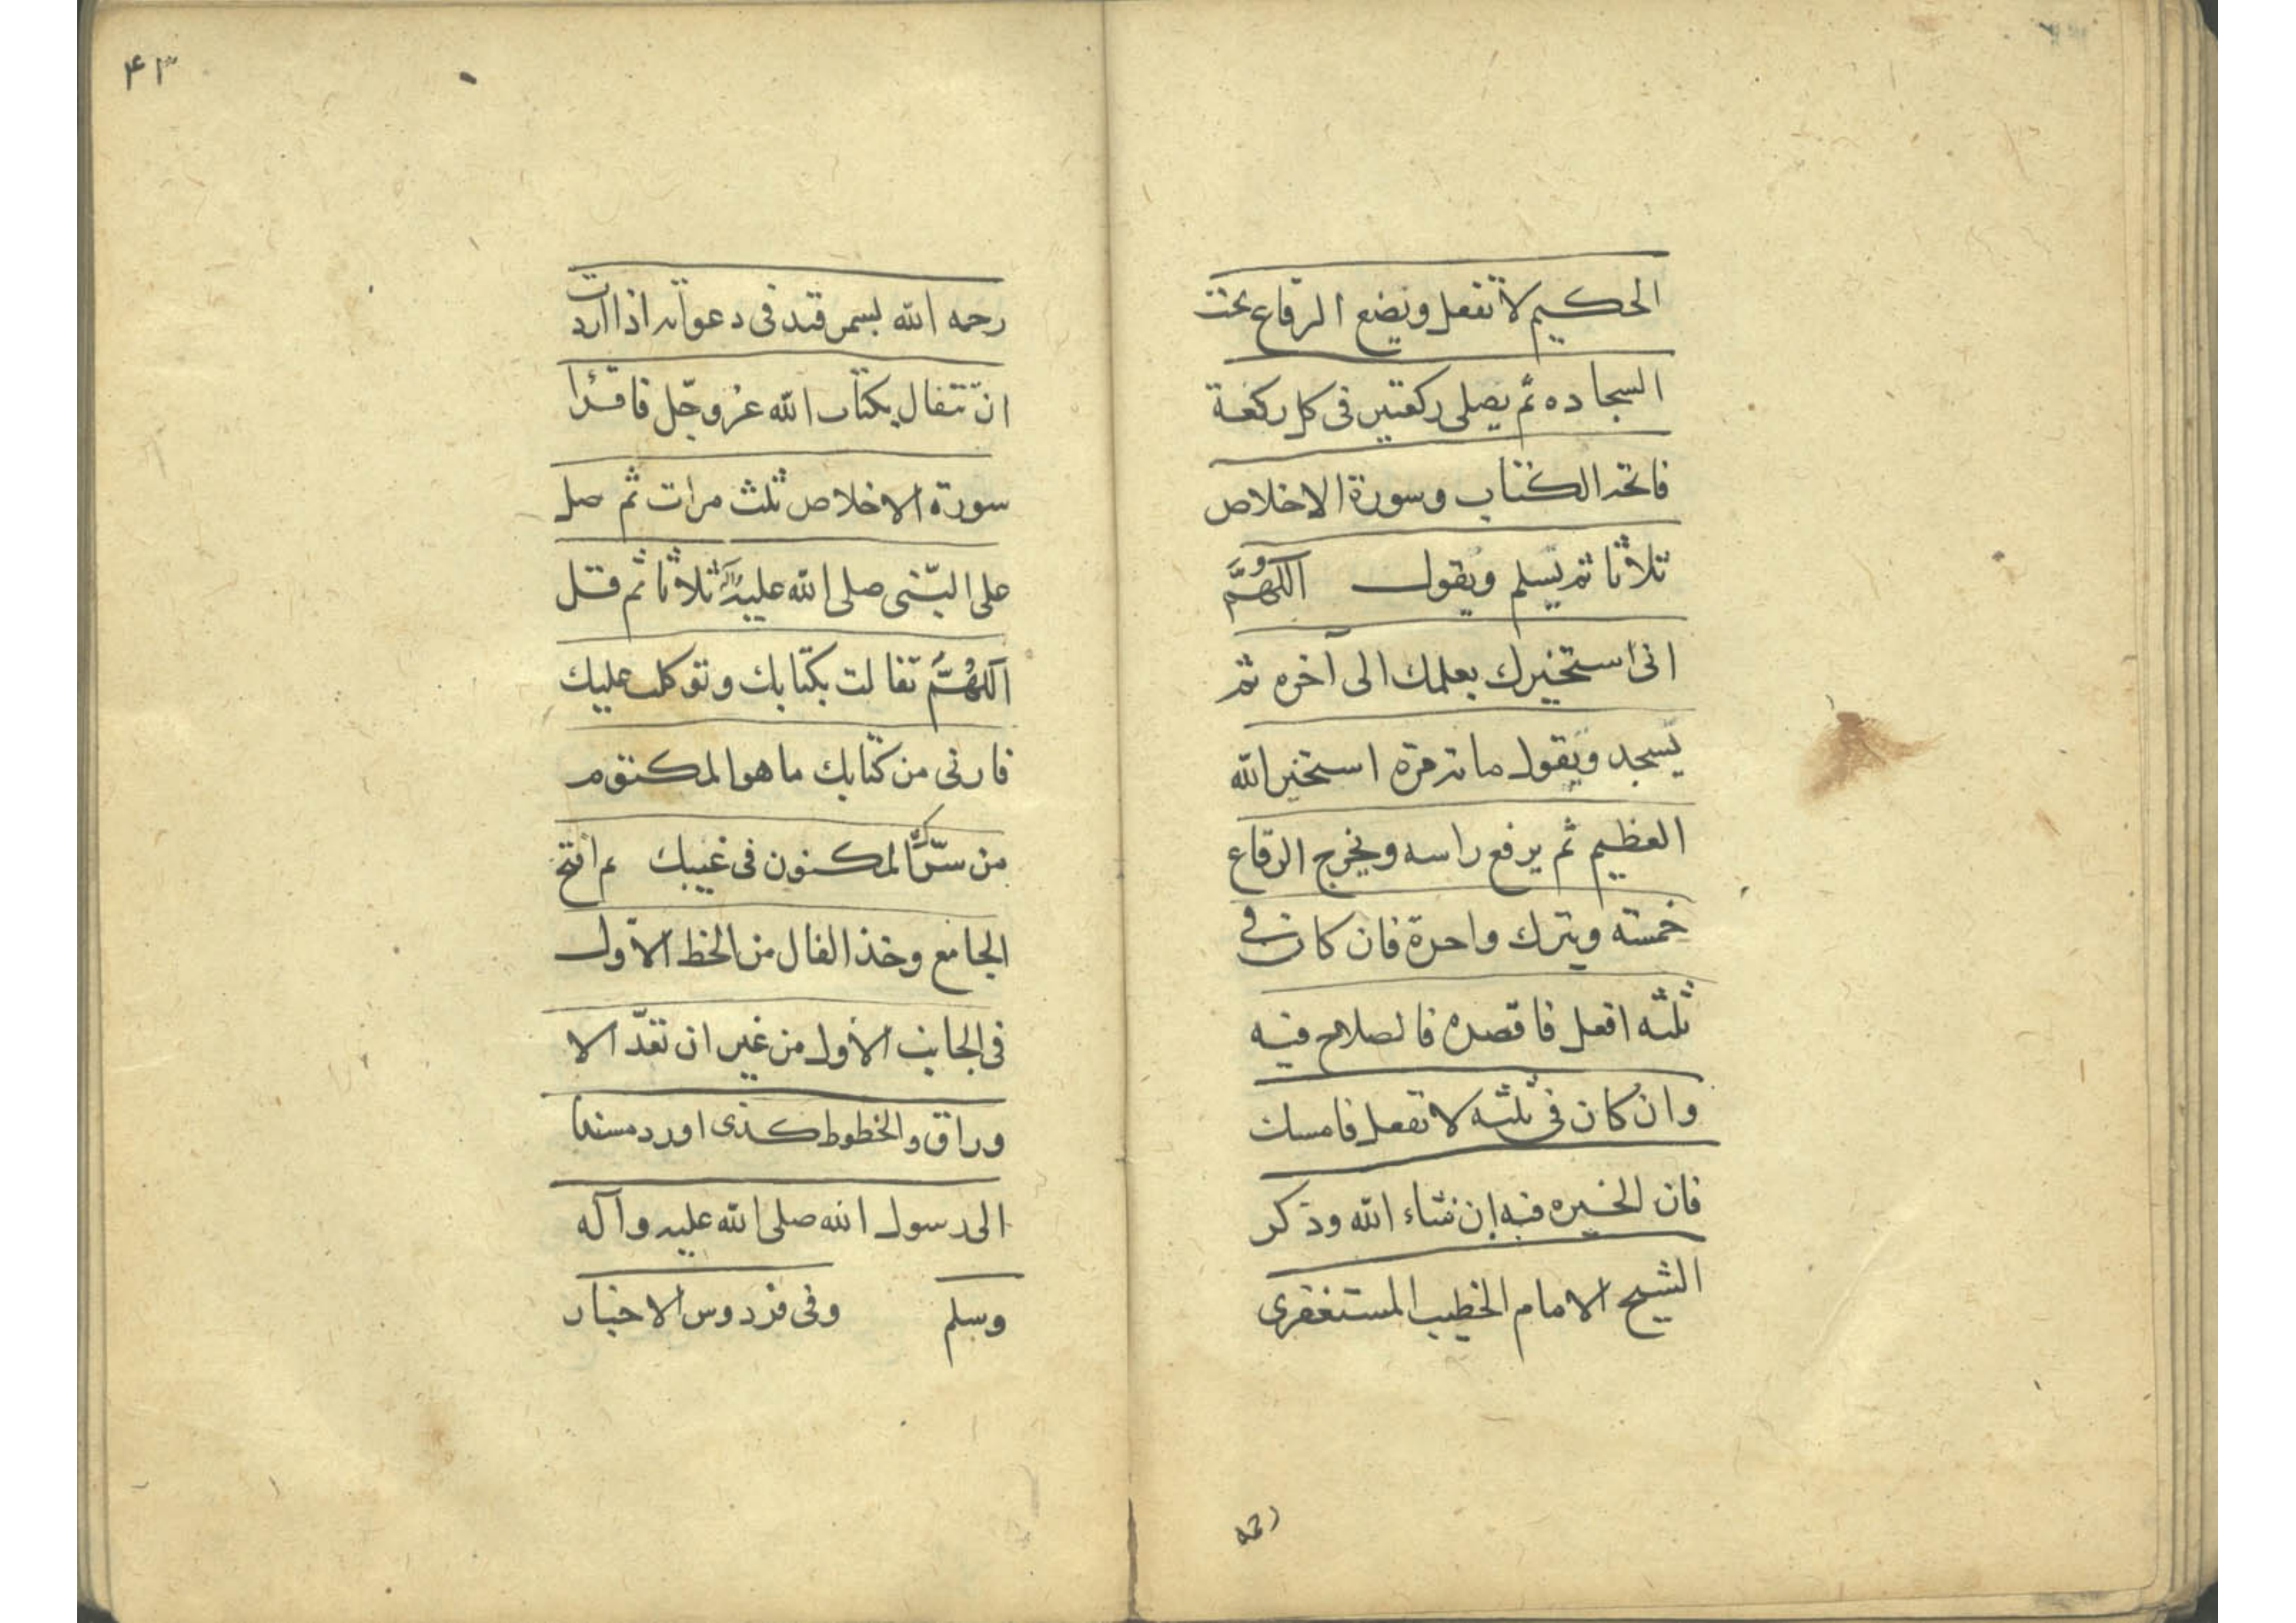 الحكيم لا تفعل ويضع الرقاع تحت
السجاده ثم يصلى ركعتين فى كل ركعة
فاتحه الكتاب وسورة الاخلاص
ثلاثا ثم يسلم ويقول اللهم
انى استخيرك بعلمك الى آخره ثم
يسجد ويقول مائه مرة استخير الله
العظيم ثم يرفع راسه ويخرج الرقاع
خمسته ويترك واحدة فان كان فى
ثلثه افعل فاقصده فالصلاح فيه
وان كان فى ثلثه لا تفعل فامسك
فان الخيره فيه إن شاء الله وذكر
الشيخ الامام الخطيب المستغفرى
رحمه
۴۳
رحمه الله بسمرقند فى دعواته اذا اردت
ان تتفال بكتاب الله عزوجّل فاقرأ
سورة الاخلاص ثلث مرات ثم صل
على النبّى صلى الله عليه وآله ثلاثا ثم قل
اللهُمَّ تفالت بكتابك وتوكلت عليك
فارنى من كتابك ما هو المكتوم
من سرّك المكنون فى غيبك ثم افتح
الجامع وخذ الفال من الخط الاوّل
فى الجانب الاول من غير ان تعدّ الا
وراق والخطوط كذى اورد مسندا
الى رسول الله صلى الله عليه وآله
وسلم وفى فردوس الاخبار